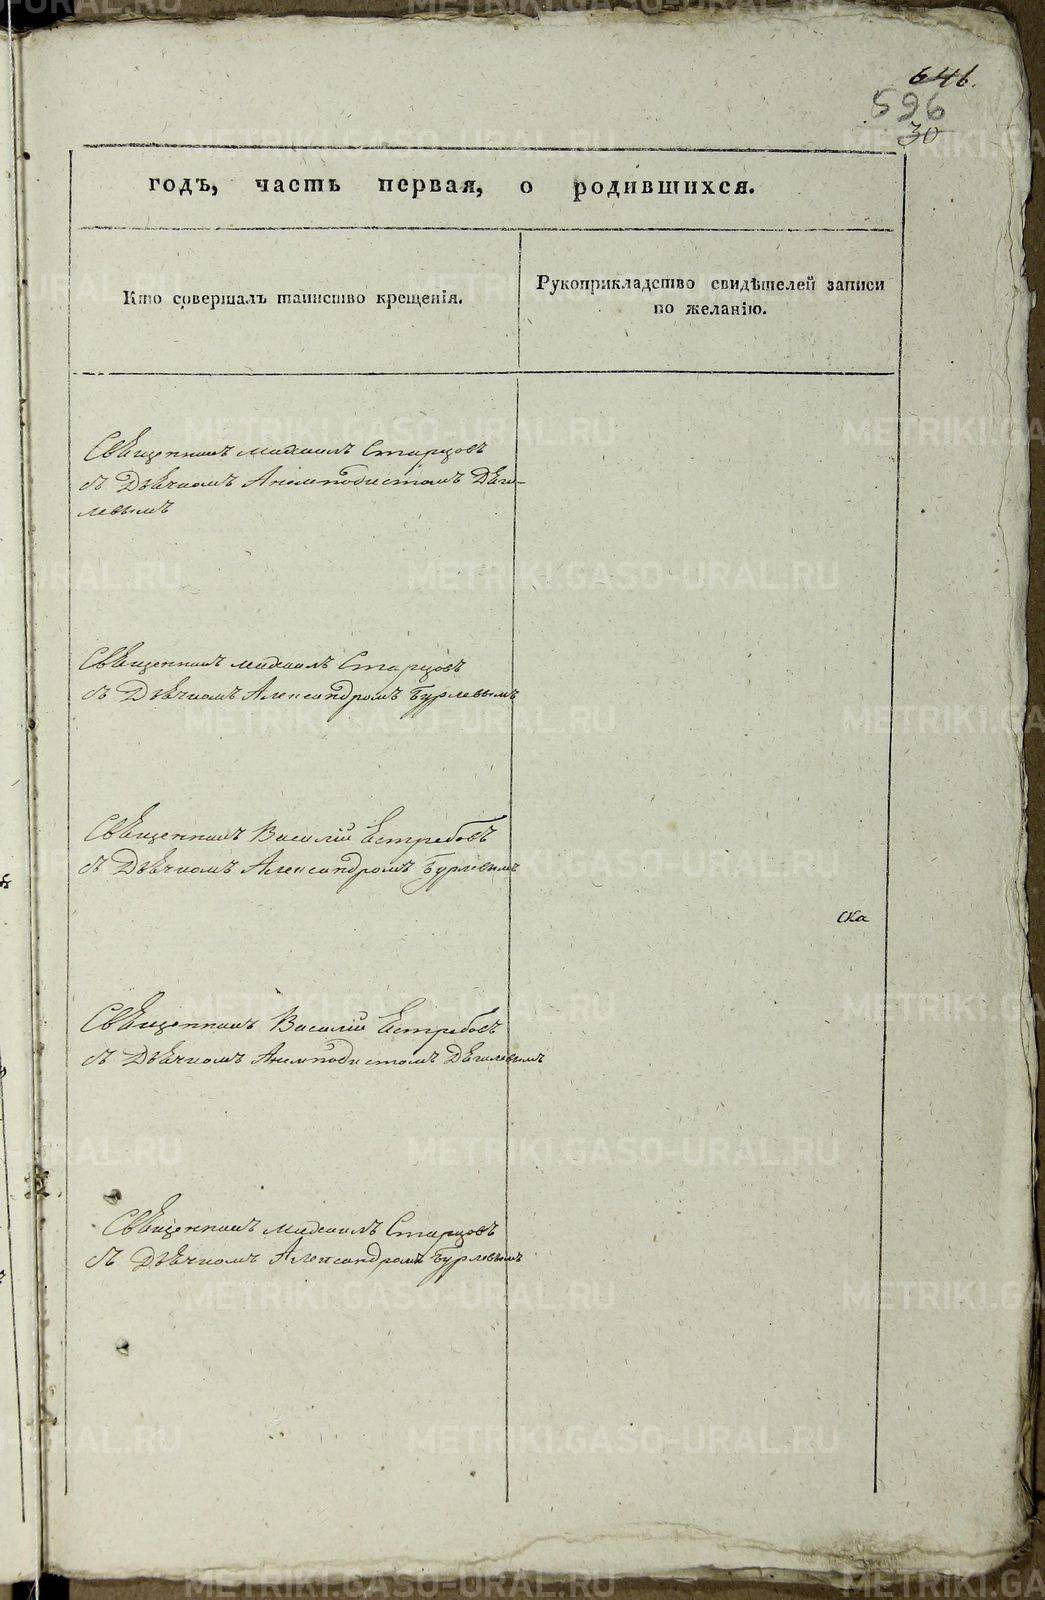 646.
596
30
годъ, часть первая, о родившихся.
Кто совершалъ таинство крещенія.
Рукоприкладство свидѣтелей записи
по желанію.
Священникъ Михаилъ Старцовъ
съ Дьячкомъ Анемподистомъ Дѣги-
левымъ
Священникъ Михаилъ Старцовъ
съ Дьячкомъ Александромъ Бурлевымъ
Священникъ Василій Ястребовъ
съ Дьячкомъ Александромъ Бурлевымъ
ска
Священникъ Василій Ястребовъ
съ Дьячкомъ Анемподистомъ Дѣгилевымъ
Священникъ Михаилъ Старцовъ
съ Дьячкомъ Александромъ Бурлевымъ
METRIKI.GASO-URAL.RU